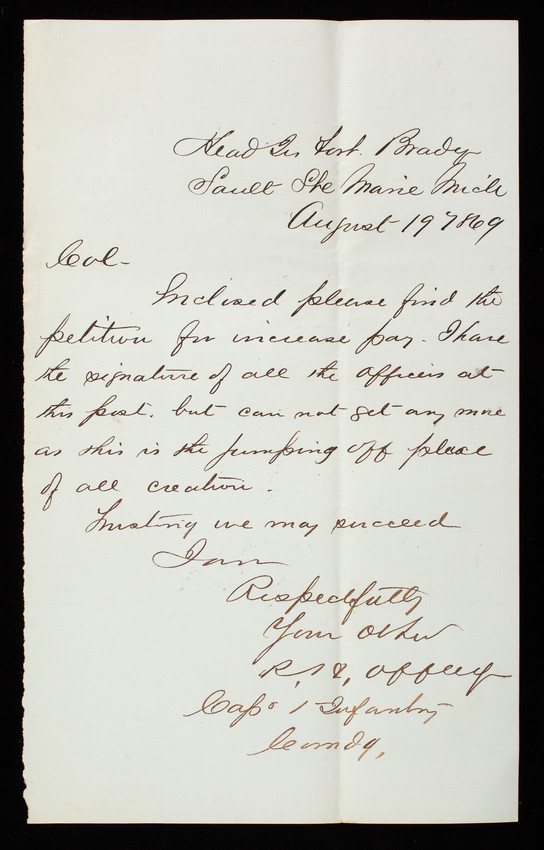 Head Qrs Fort. Brady
Sault Ste Marie Mich
August 19 1869
Col-
Inclosed please find the
petition for increase pay. I have
the signature of all the officers at
this post. but can not get any more
as this is the jumping off place
of all creation.
Trusting we may succeed
I am
Respectfully
Your Obt
R. Offley
Capt 1 Infantry
Comdg,